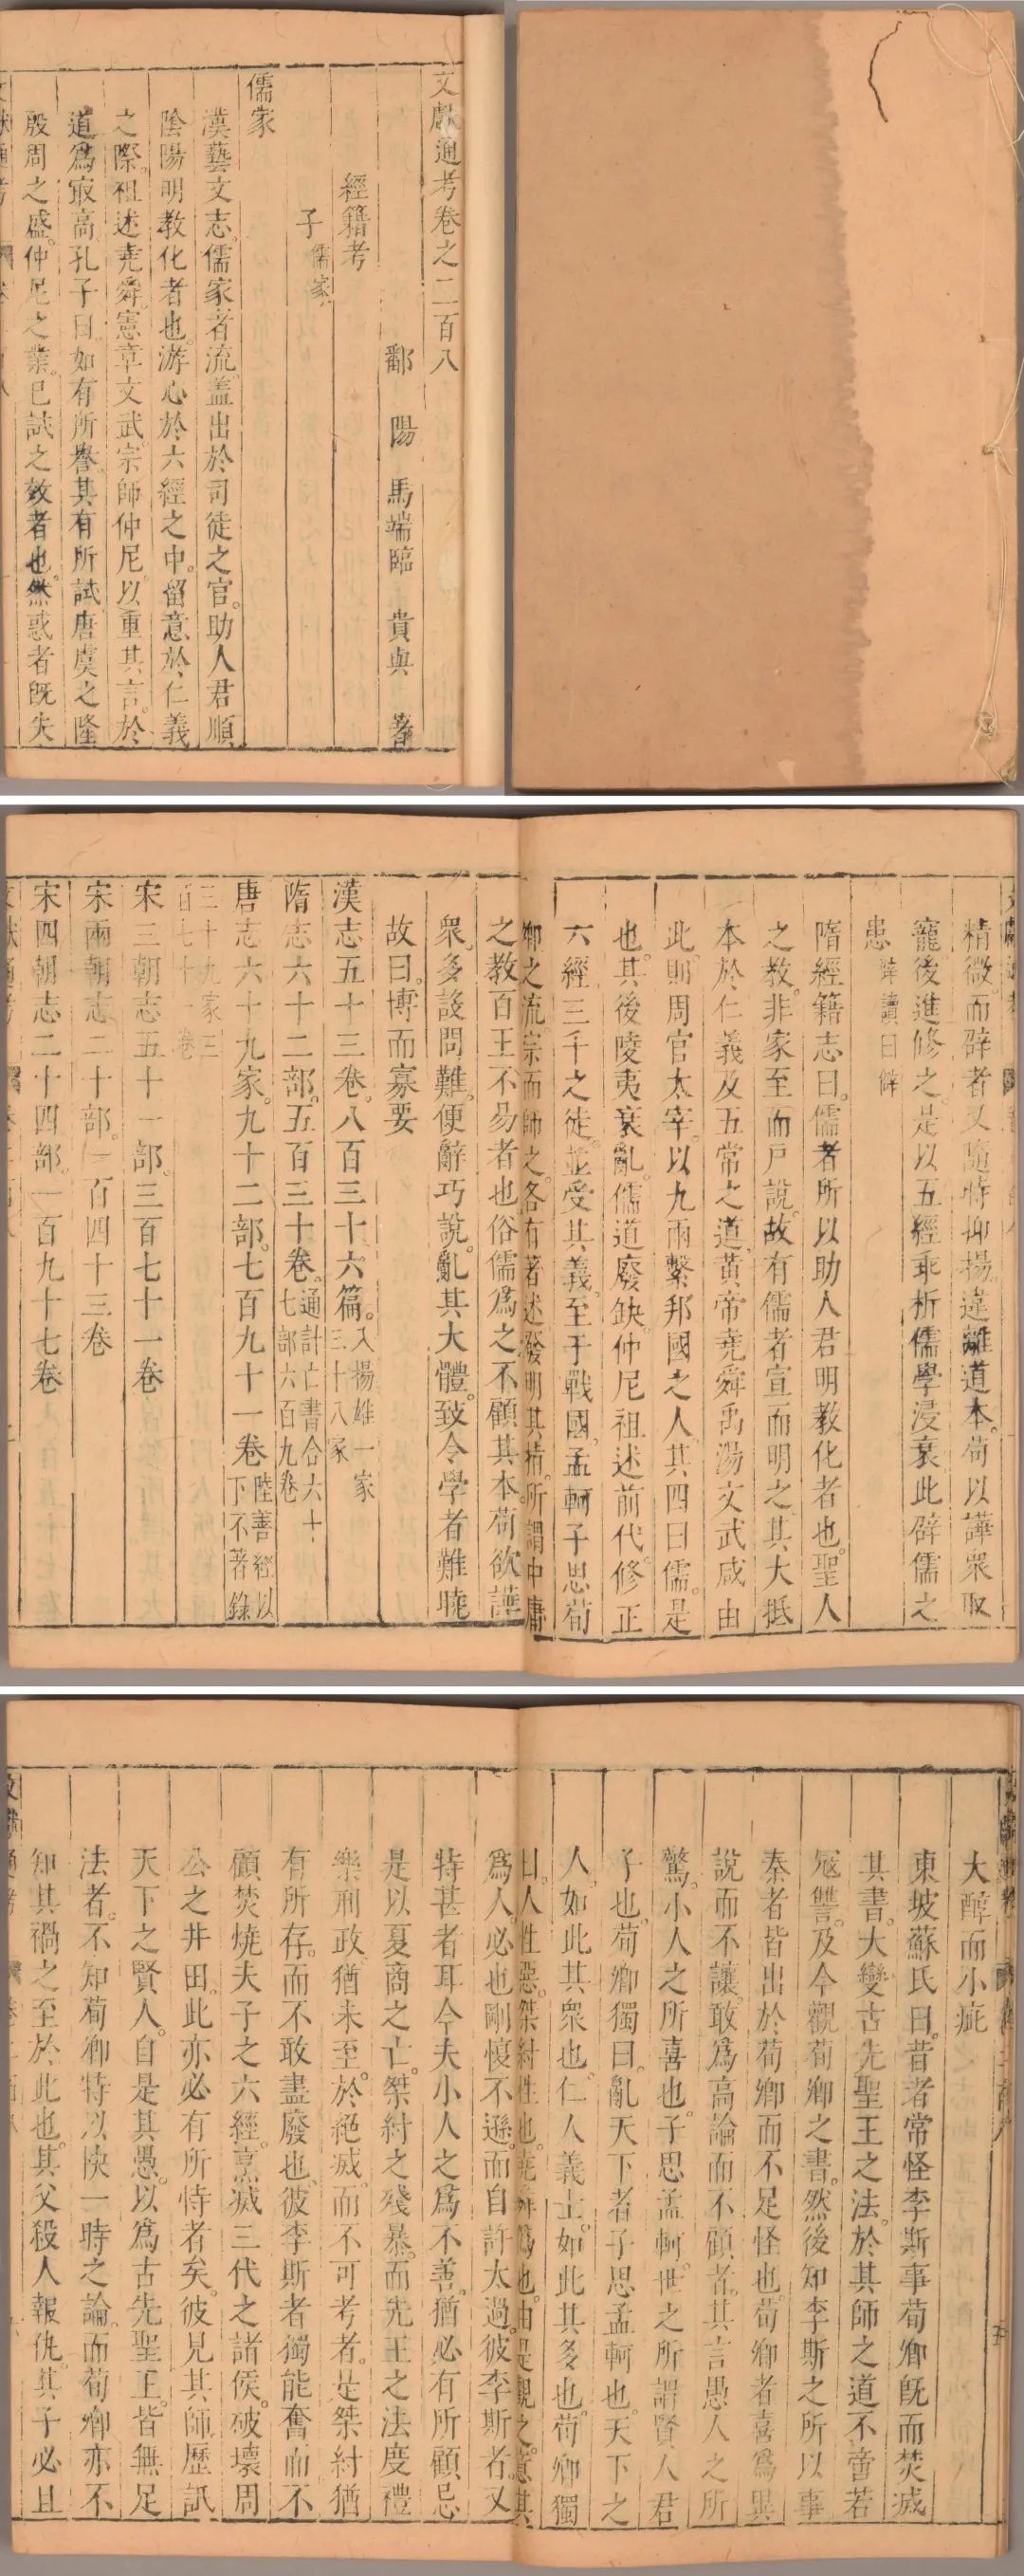 文獻通考卷之二百八
鄱陽馬端臨貴與著
經籍考
子儒家
儒家
漢藝文志儒家者流蓋出於司徒之官。助人君順
陰陽明教化者也。游心於六經之中。留意於仁義
之際。祖述堯舜。憲章文武。宗師仲尼。以重其言。於
道爲㝡高孔子曰。如有所譽其有所試。唐虞之隆
殷周之盛。仲尼之業。已試之效者也。然惑者旣失
精微。而辟者又隨時抑揚違離道本。苟以譁衆取
寵。後進修之。是以五經乖析。儒學浸衰此辟儒之
患
隋經籍志曰。儒者所以助人君明教化者也。聖人
之教。非家至而戸說。故有儒者宣而明之。其大抵
本於仁義及五常之道。黃帝堯舜禹湯文武咸由
此。則周官太宰。以九兩繫邦國之人。其四曰儒。是
也。其後陵夷衰亂。儒道廢缺。仲尼祖述前代。修正
六經三千之徒。並受其義。至于戰國孟軻子思荀
卿之流。宗而師之。各有著述發明其指。所謂中庸
之教百王不易者也俗儒爲之不顧其本。苟欲譁
衆。多設問難。便辭巧說。亂其大體。致令學者難曉
故曰。博而寡要
漢志五十三卷。八百三十六篇。入揚雄一家三十八家
隋志六十二部。五百三十卷。通計亡書合六十七部六百九卷
唐志六十九家。九十二部。七百九十一卷陸善經以下不著錄
三十九家三百七十一卷
宋三朝志五十一部。三百七十一卷
宋兩朝志二十部。一百四十三卷
宋四朝志二十四部。一百九十七卷
大醇而小疵
東坡蘇氏曰。昔者常怪李斯事荀卿旣而焚滅
其書。大變古先聖王之法。於其師之道不啻若
寇讐。及今觀荀卿之書。然後知李斯之所以事
秦者皆出於荀卿而不足怪也。荀卿者喜爲異
說而不讓。敢爲高論而不顧者。其言愚人之所
驚。小人之所喜也。子思孟軻。世之所謂賢人君
子也。荀卿獨曰。亂天下者子思孟軻也。天下之
人。如此其衆也。仁人義士。如此其多也。荀卿獨
曰。人性惡。桀紂性也。堯舜僞也。由是觀之。意其
爲人。必也剛愎不遜。而自許太過。彼李斯者。又
特甚者耳今夫小人之爲不善。猶必有所顧忌
是以夏商之亡。桀紂之殘暴。而先王之法度禮
樂刑政猶未至於絕滅。而不可考者。是桀紂猶
有所存。而不敢盡廢也。彼李斯者獨能奮而不
顧焚燒夫子之六經。烹滅三代之諸侯。破壞周
公之井田。此亦必有所恃者矣。彼見其師。歷詆
天下之賢人。自是其愚。以爲古先聖王。皆無足
法者。不知荀卿特以快一時之論。而荀卿亦不
知其禍之至於此也。其父殺人報仇。其子必且